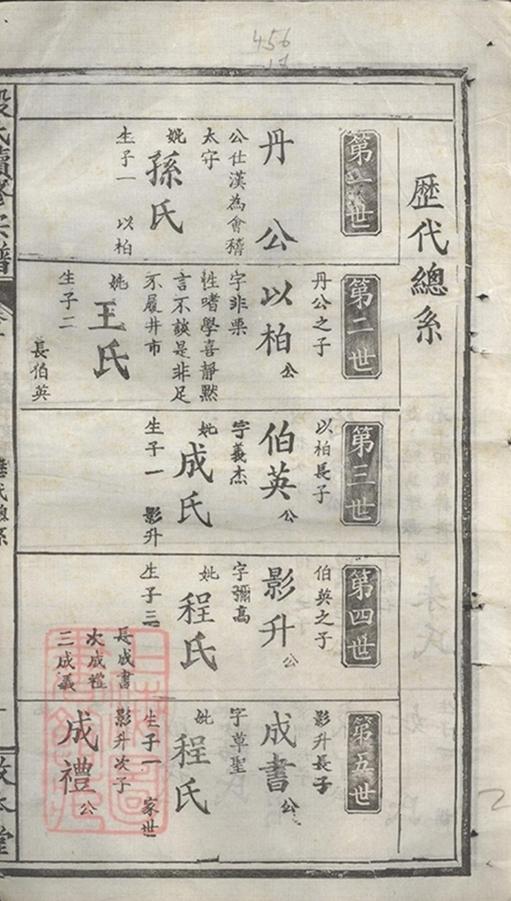 456
17
歷代總系
第一世
丹公
公仕漢為會稽
太守
妣孫氏
生子一 以柏
第二世
丹公之子
以柏公
字非栗
性嗜學喜靜默
言不談是非足
不履井市
妣王氏
生子二
長伯英
第三世
以柏長子
伯英公
字義杰
妣成氏
生子一 影升
第四世
伯英之子
影升公
字彌高
妣程氏
生子三
長成書
次成禮
三成義
第五世
影升長子
成書公
字草聖
妣程氏
生子一 家世
影升次子
成禮公
2